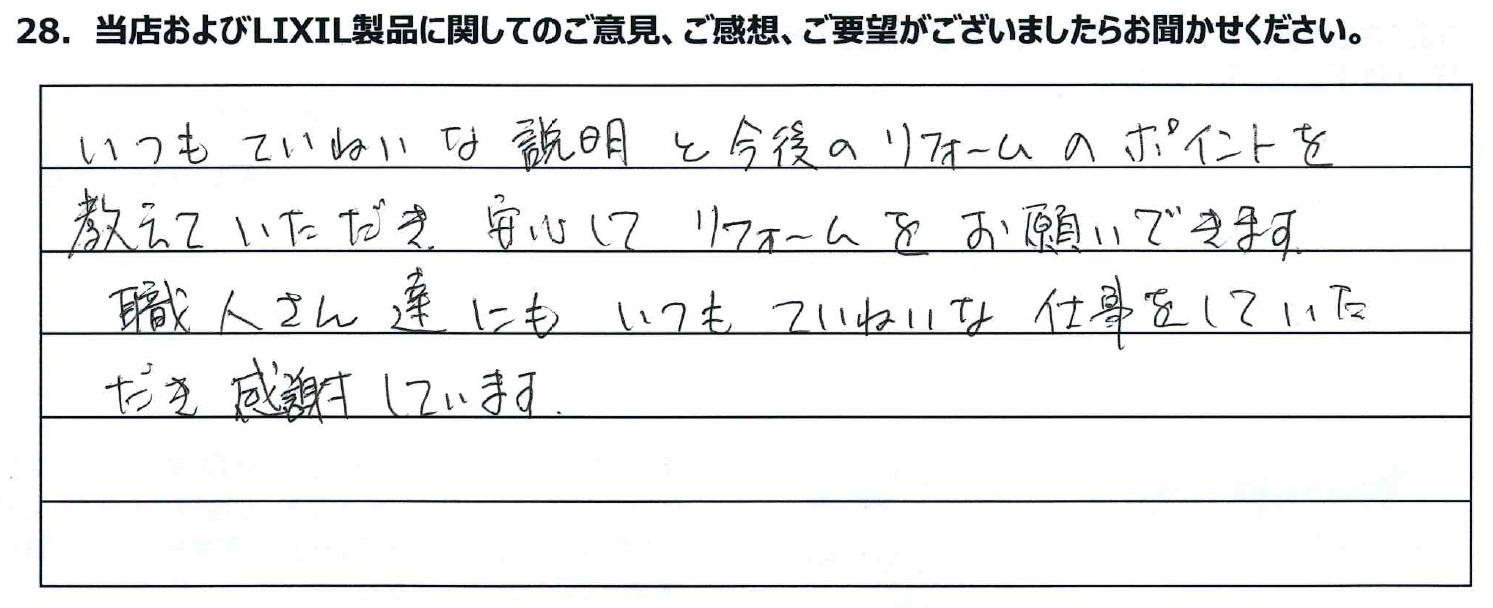 28. 当店およびLIXIL製品に関してのご意見、ご感想、ご要望がございましたらお聞かせください。
いつもていねいな説明と今後のリフォームのポイントを
教えていただき安心してリフォームをお願いできます
職人さん達にもいつもていねいな仕事をしていた
だき感謝しています.